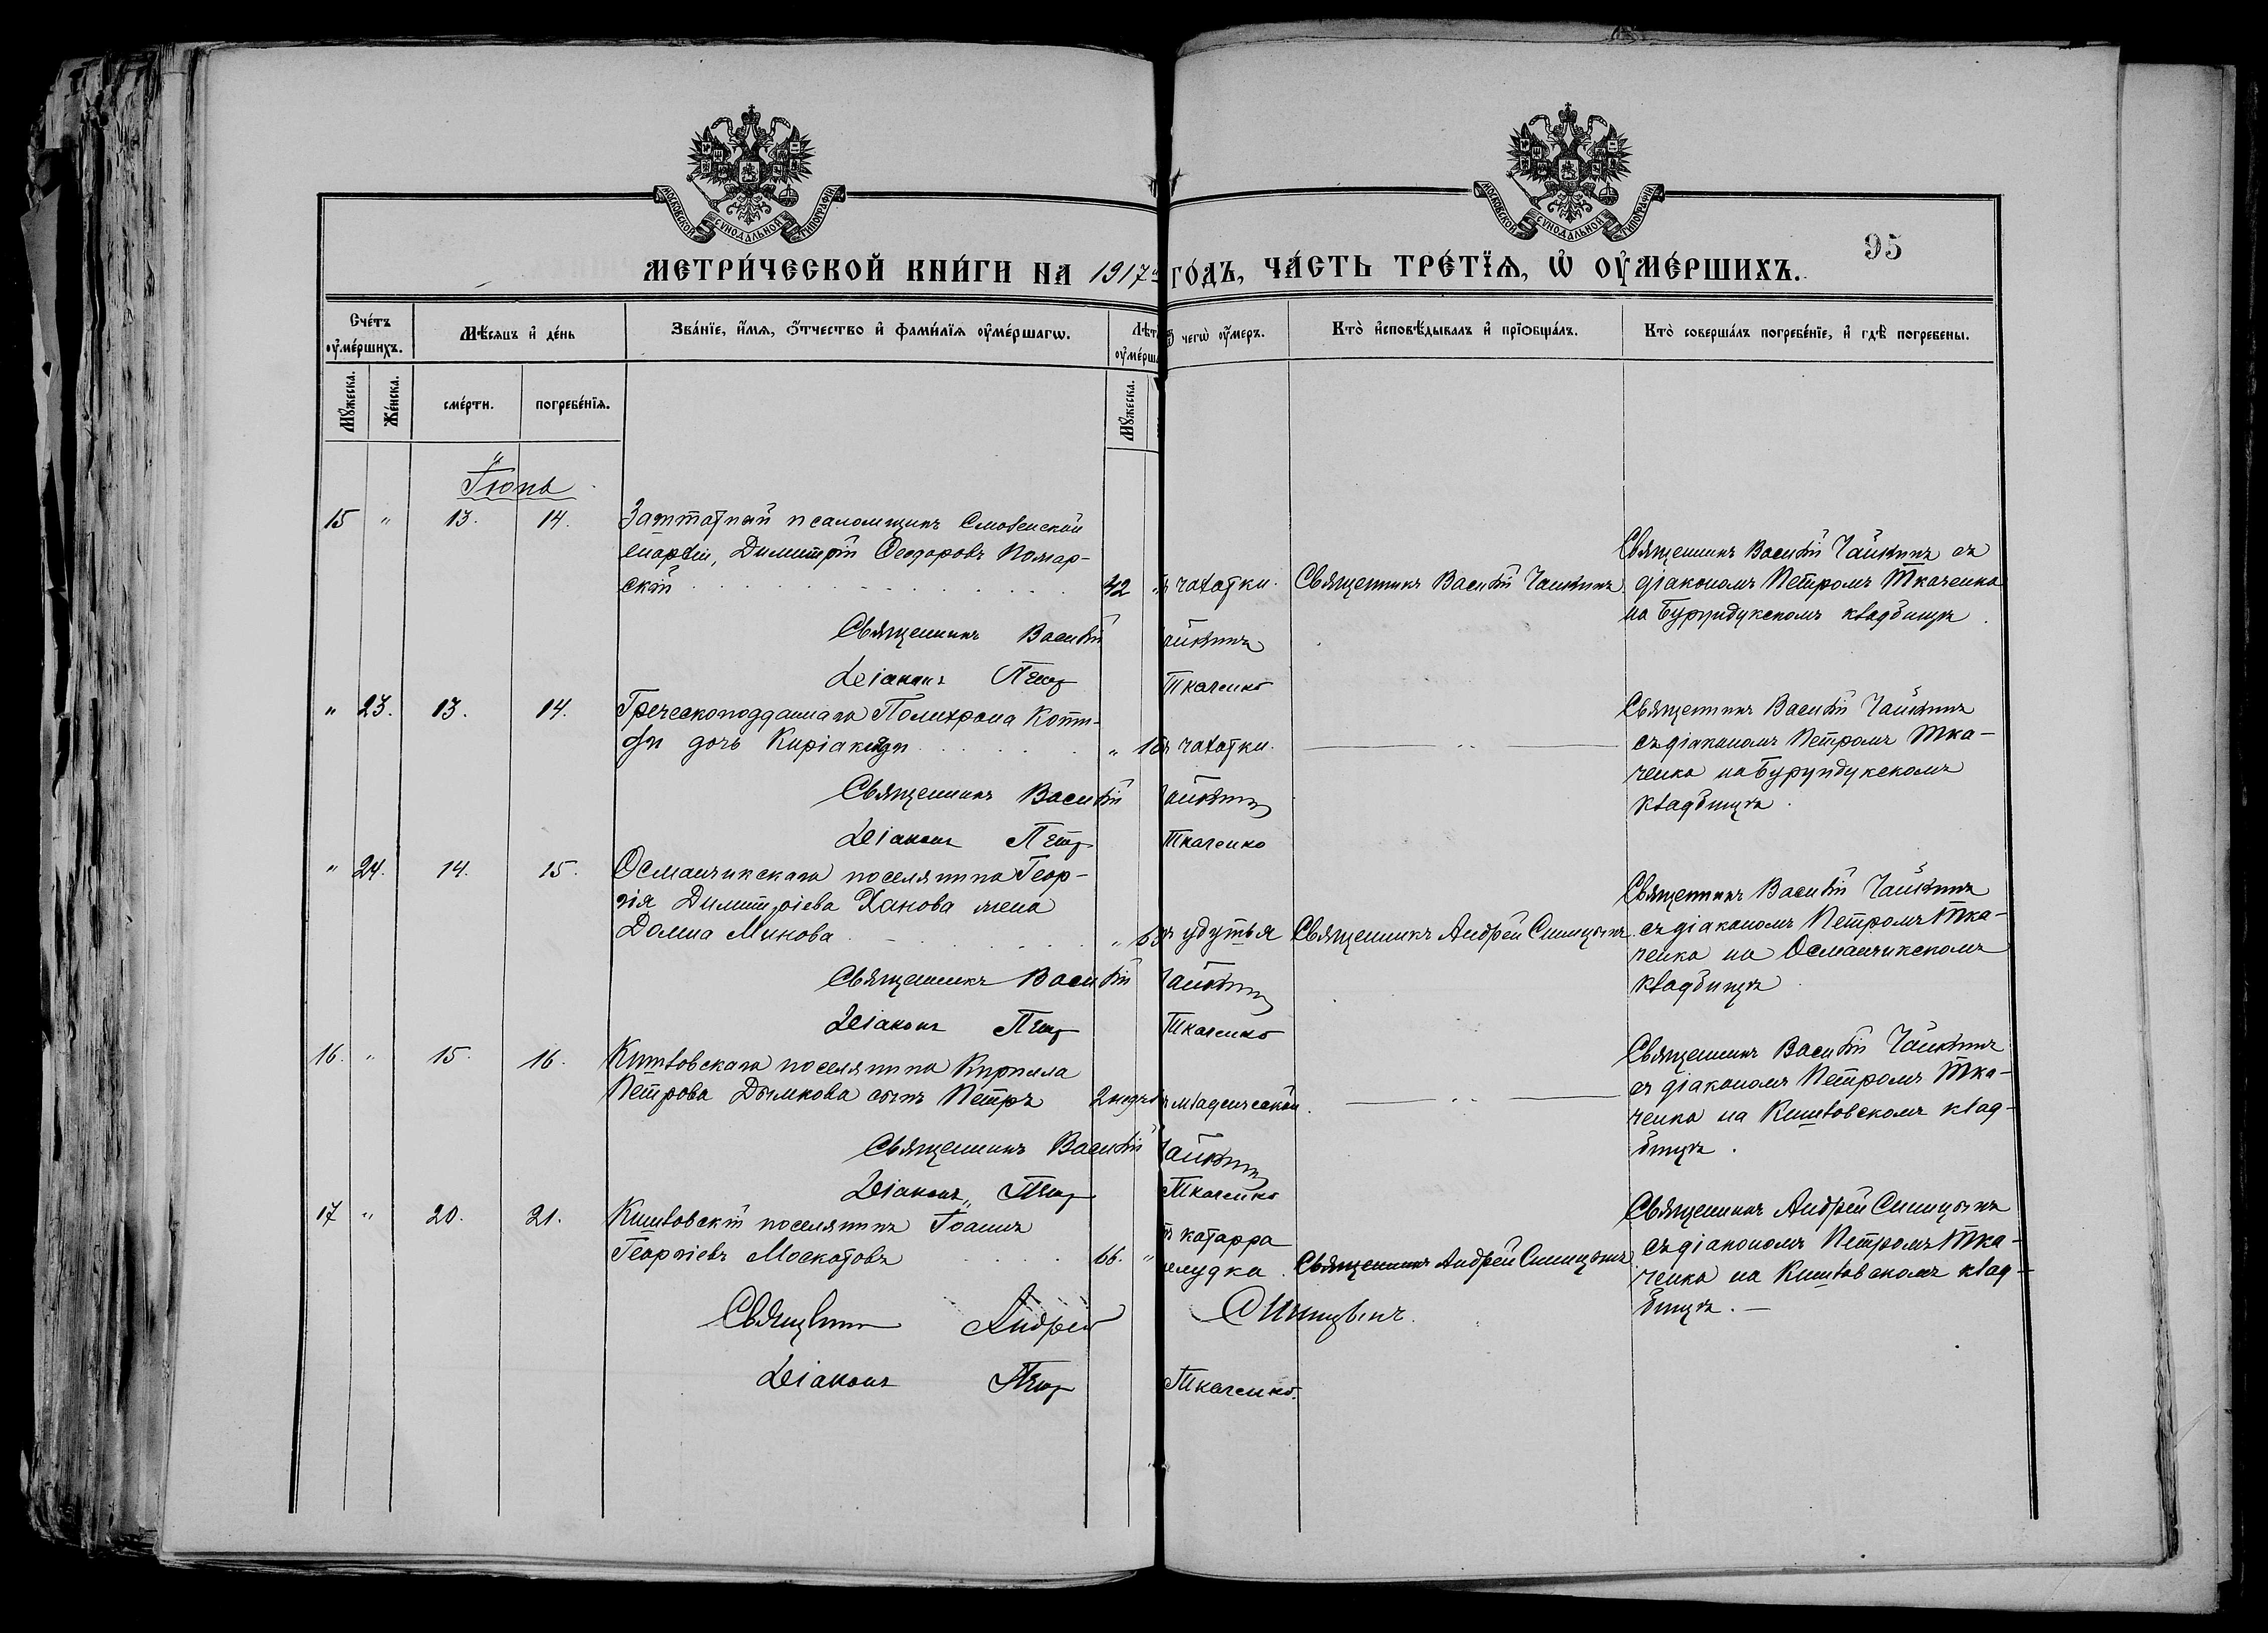 МОСКОВСКОЙ СѴНОДАЛЬНОЙ ТИПОГРАФІИ
МОСКОВСКОЙ СѴНОДАЛЬНОЙ ТИПОГРАФІИ
95
МЕТРИ́ЧЕСКОЙ КНИ́ГИ НА 1917й ГО́ДЪ, ЧА́СТЬ ТРЕ́ТЇѦ, Ѡ҆ ОУ҆МЕ́РШИХЪ.
Сче́тъ оу҆ме́ршихъ.
Мѣ́сяцъ и҆ де́нь
Зва́нїе, и҆́мѧ, ѻ҆́тчество и҆ фами́лїѧ оу҆ме́ршагѡ.
Лѣт
оу҆ме́рша
чегѡ̀ оу҆́меръ.
Кто̀ и҆сповѣ́дывалъ и҆ прїѡбща́лъ.
Кто̀ соверша́лъ погребе́нїе, и҆ гдѣ̀ погребены.
Мꙋ́жеска.
Же́нска.
сме́рти.
погребе́нїѧ.
Мꙋ́жеска.
Іюнь
15 " 13. 14. Заштатный псаломщикъ Смоленской
епархіи, Димитрій Ѳеодоровъ Помар-
скій 42 " чахотки. Священникъ Василій Чайкинъ
Священникъ Василій Чайкинъ съ
діакономъ Петромъ Ткаченко
на Бурундукскомъ кладбищѣ.
Священникъ Василій Чайкинъ
Діаконъ Петръ Ткаченко
" 23. 13. 14. Греческоподданнаго Полихрона
дочь чахотки. "
Священникъ Василій Чайкинъ
съ діакономъ Петромъ Тка-
ченко на Бурундукскомъ
кладбищѣ.
Священникъ Василій Чайкинъ
Діаконъ Петръ Ткаченко
" 24. 14. 15. Османчикскаго поселянина Геор-
гія Димитріева Ханова жена
Домна Минова " удушья Священникъ Андрей Синицынъ
Священникъ Василій Чайкинъ
съ діакономъ Петромъ Тка-
ченко на Османчикскомъ
кладбищѣ
Священникъ Василій Чайкинъ
Діаконъ Петръ Ткаченко
16. " 15. 16. Кишловскаго поселянина Кирилла
Петрова Дымкова сынъ Петръ младенческой. "
Священникъ Василій Чайкинъ
съ діакономъ Петромъ Тка-
ченко на Кишловскомъ клад-
бищѣ.
Священникъ Василій Чайкинъ
Діаконъ Петръ Ткаченко
17 " 20. 21. Кишловскій поселянинъ Іоаннъ
Георгіевъ Москатовъ 66. " катарра
желудка. Священникъ Андрей Синицынъ
Священникъ Андрей Синицынъ
съ діакономъ Петромъ Тка-
ченко на Кишловскомъ клад-
бищѣ. —
Священникъ Андрей Синицынъ.
Діаконъ Петръ Ткаченко.